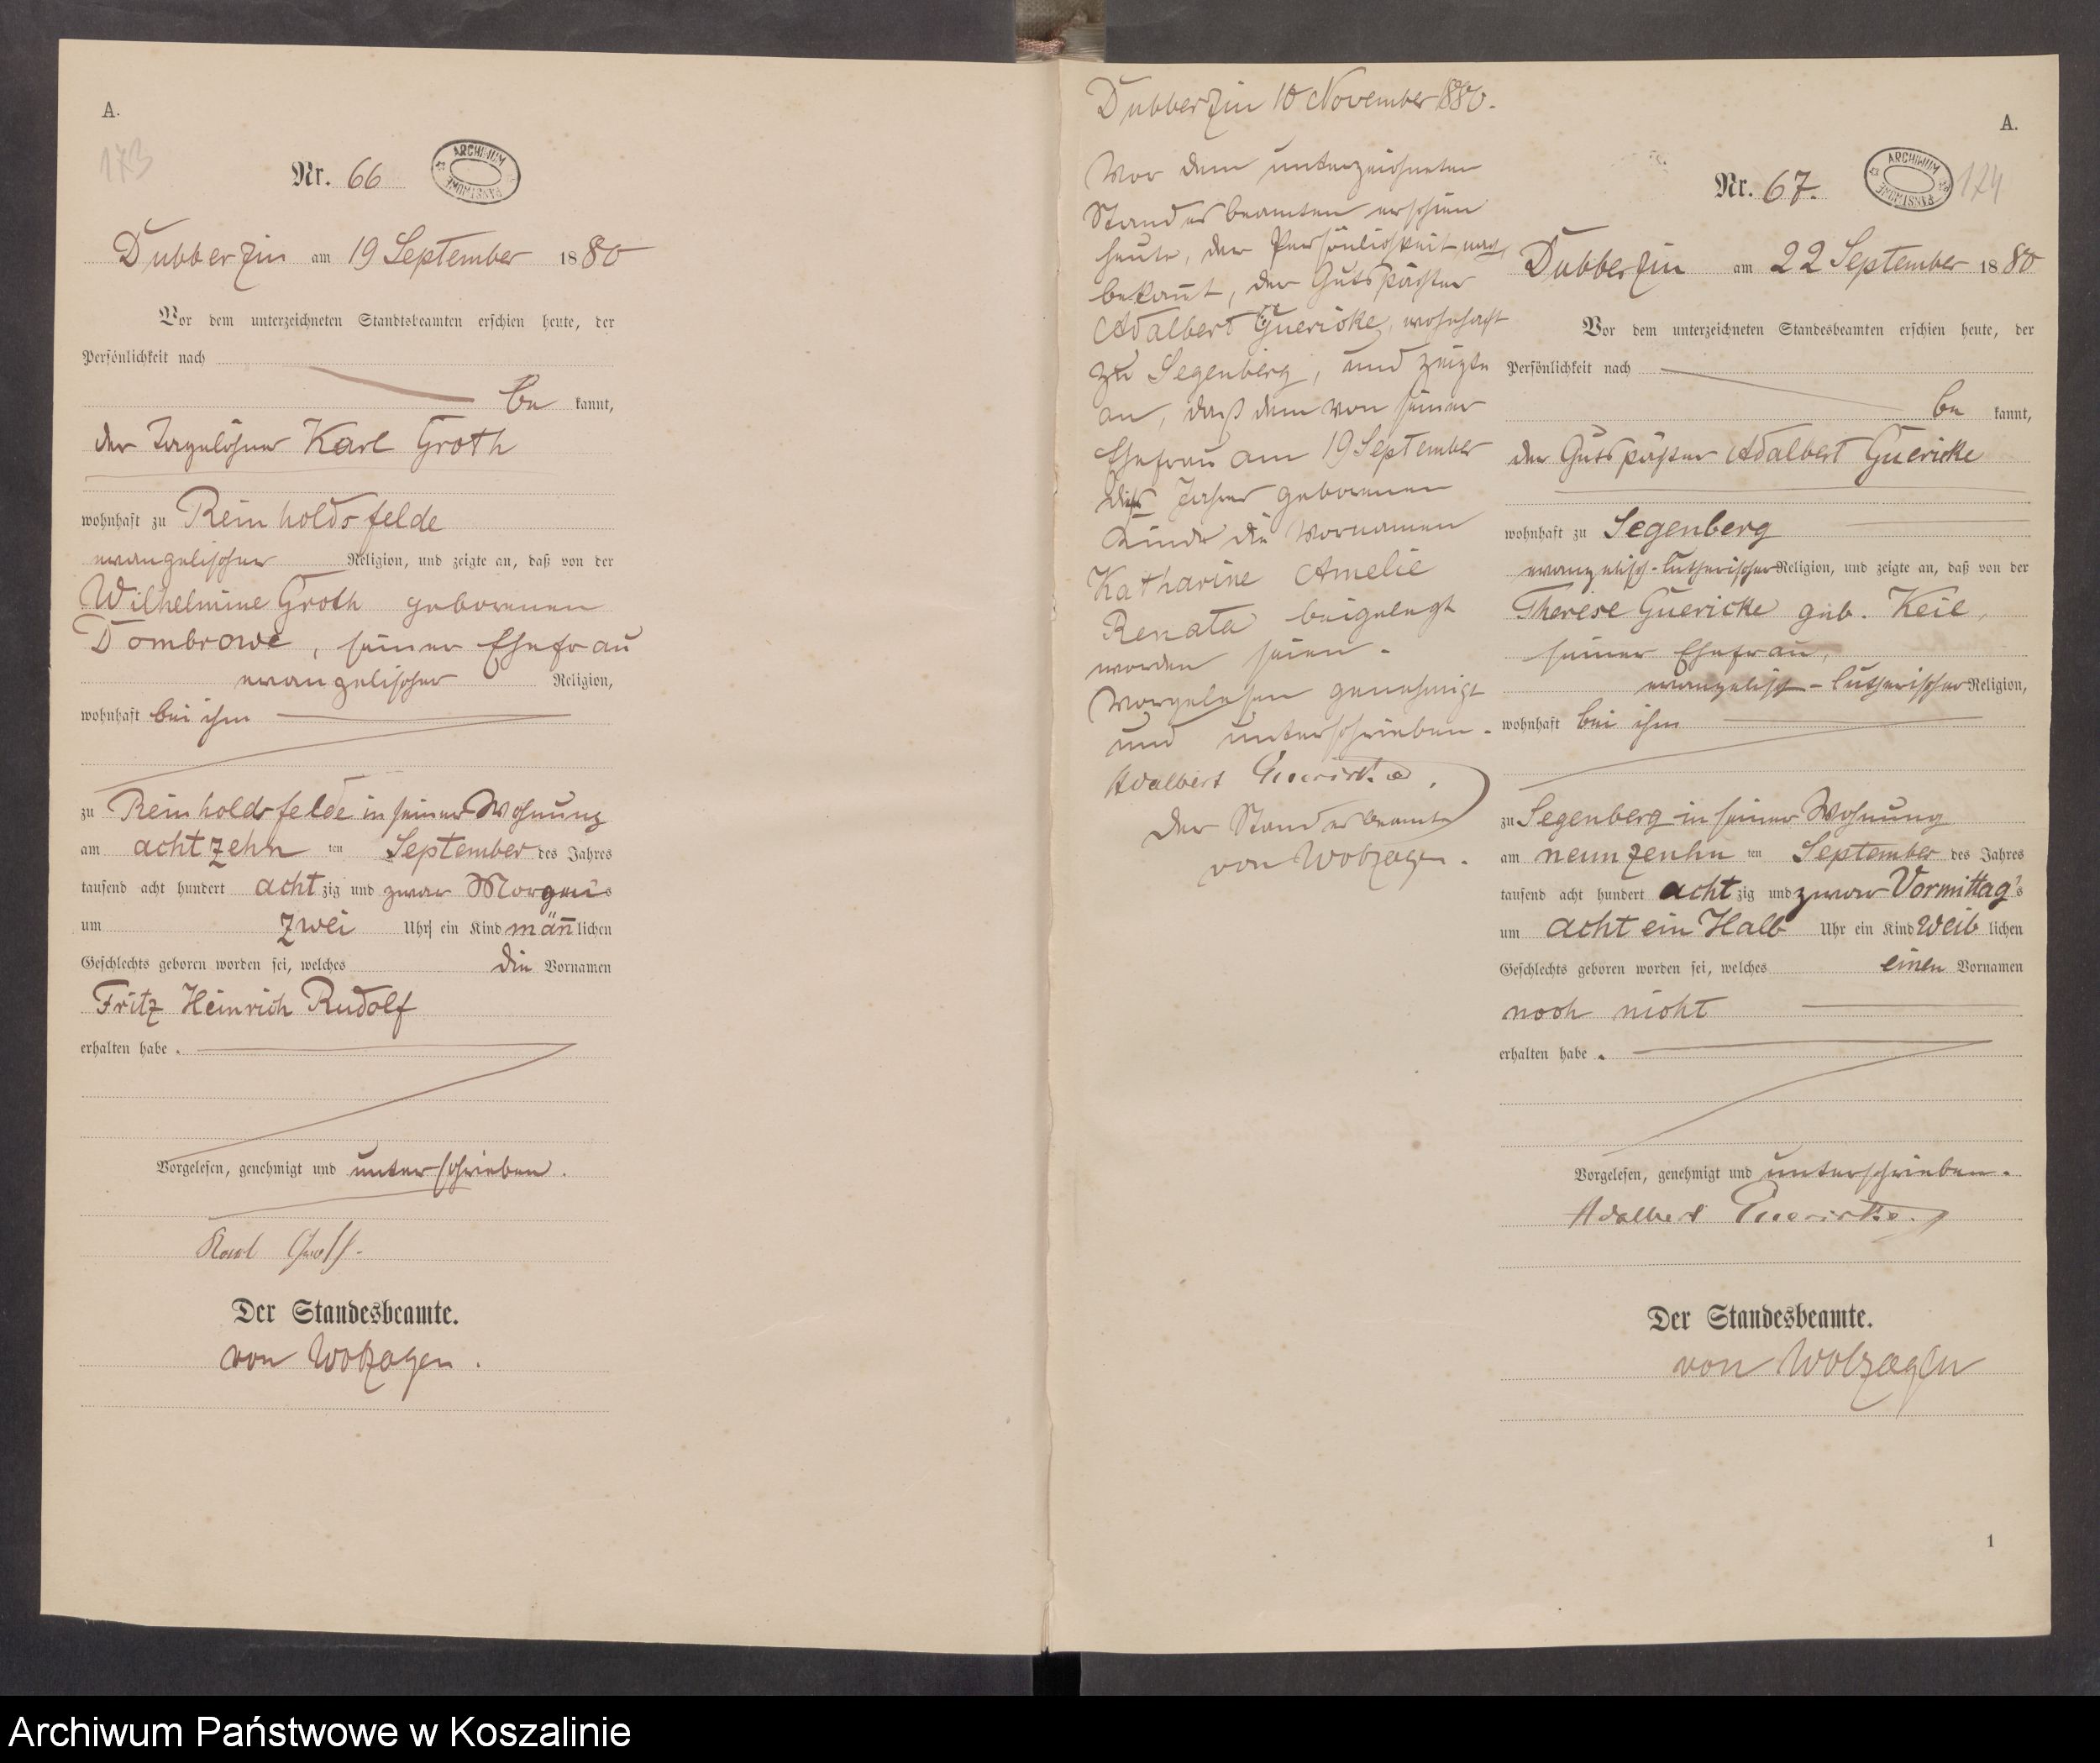 A.
173
Nr. 66
ARCHIWUM PAŃSTWOWE
Dubberzin am 19 September 1880
Vor dem unterzeichneten Standtsbeamten erschien heute, der
Persönlichkeit nach
be kannt,
der Tagelöhner Karl Groth
wohnhaft zu Reinholdsfelde
evangelischer Religion, und zeigte an, daß von der
Wilhelmine Groth geborenen
Dombrowe, seiner Ehefrau
evangelischer Religion,
wohnhaft bei ihm
zu Reinholdsfelde in seiner Wohnung
am achtzehn ten September des Jahres
tausend acht hundert achtzig und zwar Morgens
um zwei Uhr ein Kind männlichen
Geschlechts geboren worden sei, welches die Vornamen
Fritz Heinrich Rudolf
erhalten habe.
Vorgelesen, genehmigt und unterschrieben.
Karl Groth.
Der Standesbeamte.
von Wolzogen.
Dubberzin 10 November 1880.
Vor dem unterzeichneten
Standesbeamten erschien
heute, der Persönlichkeit nach
bekannt, der Gutspächter
Adalbert Guericke, wohnhaft
zu Segenberg, und zeigte
an, daß dem von seiner
Ehefrau am 19 September
dies Jahres geborenen
Kinde die Vornamen
Katharine Amelie
Renata beigelegt
worden seien.
Vorgelesen genehmigt
und unterschrieben.
Adalbert Guericke.
Der Standesbeamte
von Wolzogen.
A.
Nr. 67.
ARCHIWUM PAŃSTWOWE
174
Dubberzin am 22 September 1880
Vor dem unterzeichneten Standesbeamten erschien heute, der
Persönlichkeit nach
be kannt,
der Gutspächter Adalbert Guericke
wohnhaft zu Segenberg
evangelisch-lutherischer Religion, und zeigte an, daß von der
Therese Guericke geb. Keil,
seiner Ehefrau,
evangelisch-lutherischer Religion,
wohnhaft bei ihm
zu Segenberg in seiner Wohnung
am neunzenhn ten September des Jahres
tausend acht hundert achtzig und zwar Vormittag's
um acht ein Halb Uhr ein Kind weiblichen
Geschlechts geboren worden sei, welches einen Vornamen
noch nicht
erhalten habe.
Vorgelesen, genehmigt und unterschrieben.
Adalbert Guericke.
Der Standesbeamte.
von Wolzogen
1
Archiwum Państwowe w Koszalinie